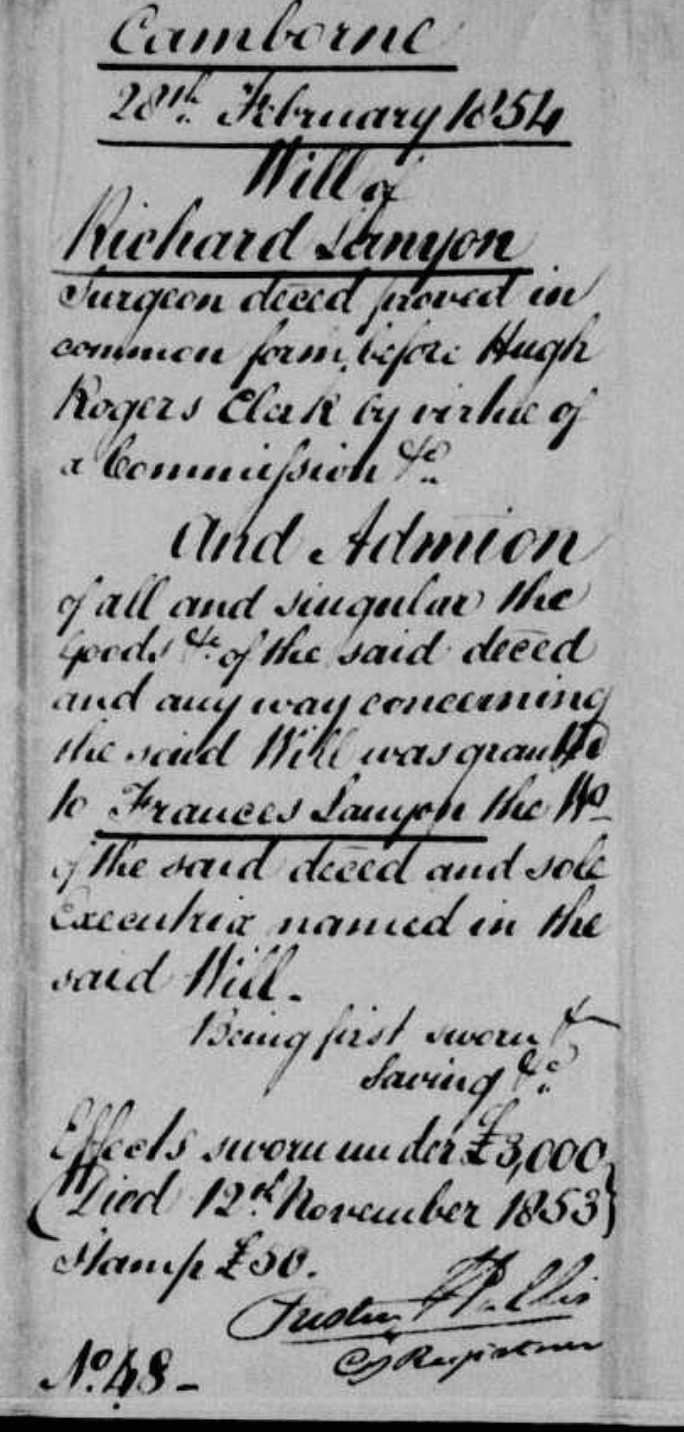 Camborne
28th. February 1854
Will of
Richard Lanyon
Surgeon deced proved in
common form, before Hugh
Rogers Clerk by virtue of
a Commission &c.
And Admion
of all and singular the
Goods &c. of the said deced
and any way concerning
the said Will was granted
to Frances Lanyon the Wo
of the said deced and sole
Executrix named in the
said Will.
Being first sworn &c
Saving &c.
Effects sworn under £3,000
(Died 12th November 1853)
Stamp £50.
Registrar
No. 48 -